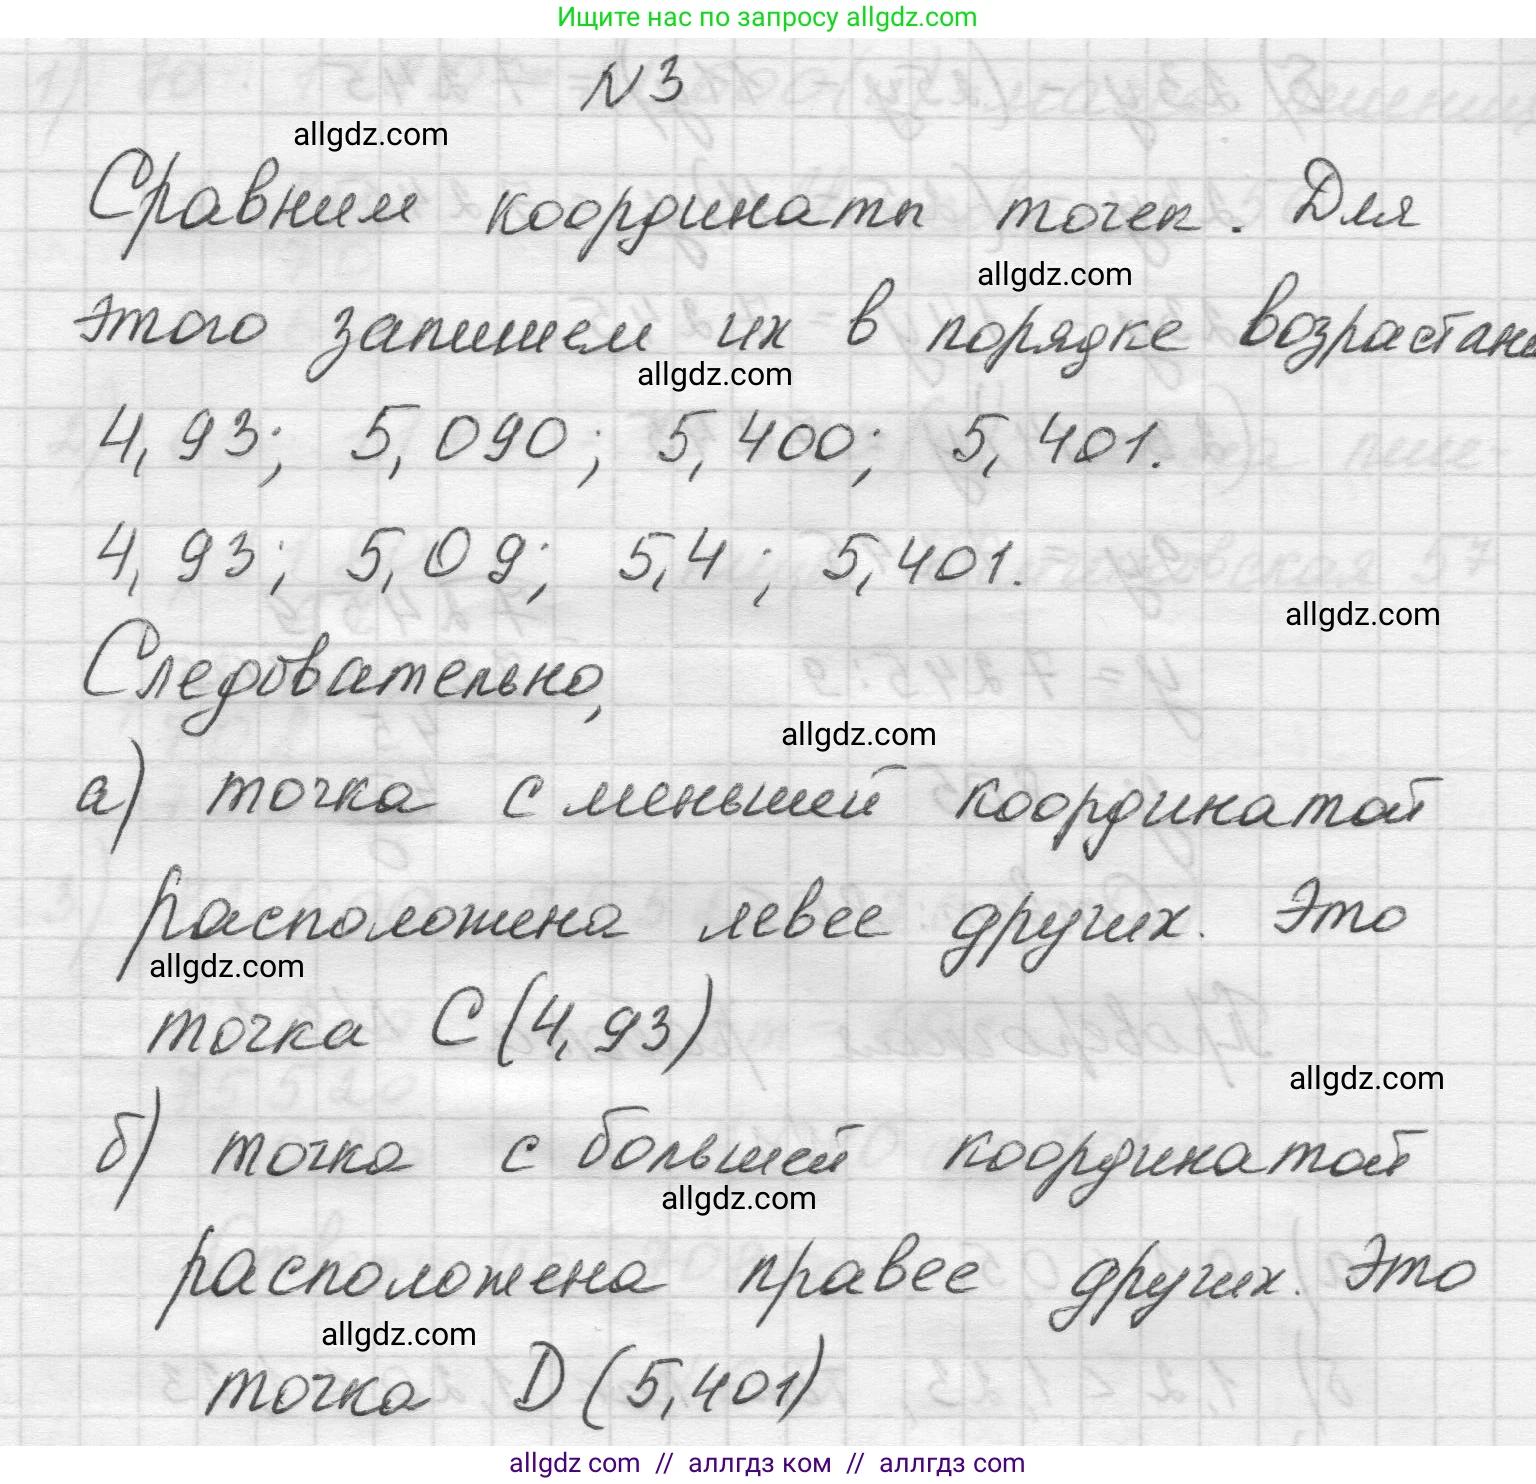 Ищите нас по запросу allgdz.com
N3
allgdz.com
Сравним координаты точек. Для
allgdz.com
этого запишем их в порядке возрастани
allgdz.com
4,93; 5,090; 5,400; 5,401.
4,93; 5,09; 5,4; 5,401.
allgdz.com
Следовательно,
allgdz.com
а) точка с меньшей координатой
расположена левее других. Это
allgdz.com
точка C(4,93)
allgdz.com
б) точка с большей координатой
allgdz.com
расположена правее других. Это
allgdz.com
точка D(5,401)
allgdz com // аллгдз ком // аллгдз com